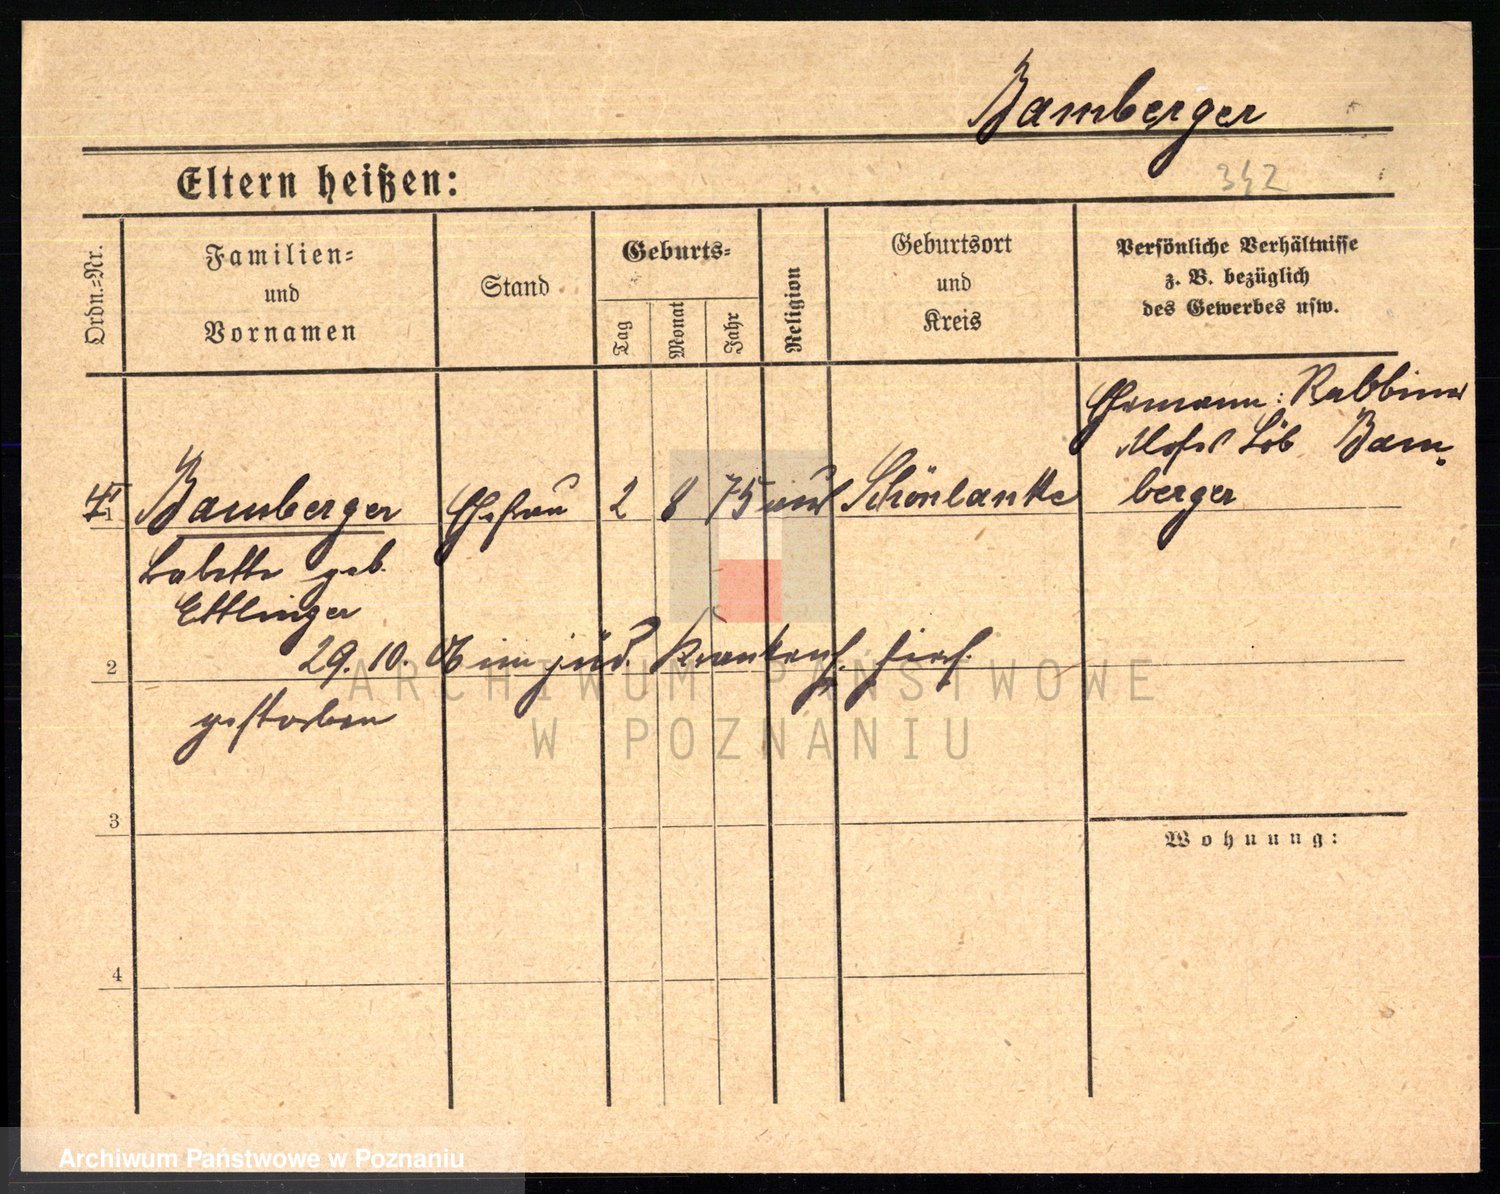 Bamberger
Eltern heißen:
342
Ordn.-Nr.
Familien-
und
Vornamen
Stand
Geburts-
Tag
Monat
Jahr
Religion
Geburtsort
und
Kreis
Persönliche Verhältnisse
z. B. bezüglich
des Gewerbes usw.
Ehemann: Rabbiner
Moses Löb Bam-
berger
1
Bamberger Ehefrau 2 8 75 Schönlanke
Babette geb.
Ettlinger
2
29. 10. 06 im jüd. Krankenh. hies.
gestorben
3
Wohnung:
4
ARCHIWUM PAŃSTWOWE
W POZNANIU
Archiwum Państwowe w Poznaniu